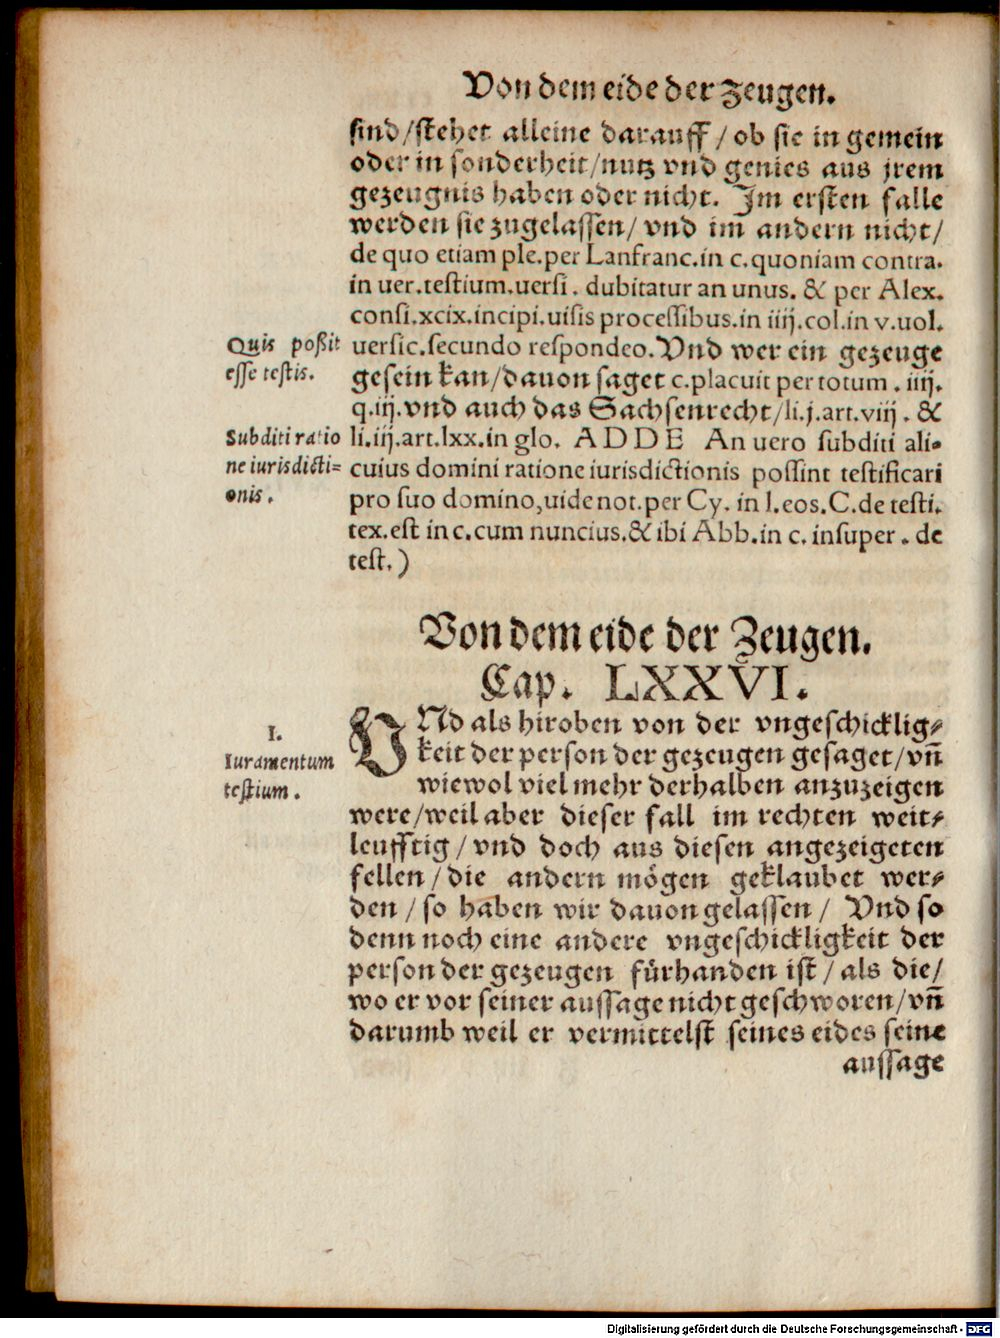 Von dem eide der Zeugen.
sind/stehet alleine darauff/ob sie in gemein
oder in sonderheit/nutz vnd genies aus jrem
gezeugnis haben oder nicht. Im ersten falle
werden sie zugelassen/ vnd im andern nicht/
de quo etiam ple.per Lanfranc.in c.quoniam contra.
in uer.testium.uersi. dubitatur an unus. & per Alex.
consi.xcix.incipi.uisis processibus.in iiij.col.in v.uol.
Quis poßit
esse testis.
uersic.secundo respondeo.Vnd wer ein gezeuge
gesein kan/dauon saget c.placuit per totum. iiij.
q.iij.vnd auch das Sachsenrecht/li.j.art.viij. &
Subditi ratio
ne iurisdicti=
onis.
li.iij.art.lxx.in glo. ADDE An uero subditi ali-
cuius domini ratione iurisdictionis possint testificari
pro suo domino,uide not.per Cy. in l.eos.C.de testi.
tex.est in c.cum nuncius.& ibi Abb.in c. insuper. de
test.)
Von dem eide der Zeugen.
Cap. LXXVI.
I.
Iuramentum
testium.
VNd als hiroben von der vngeschicklig=
keit der person der gezeugen gesaget/vñ
wiewol viel mehr derhalben anzuzeigen
were/weil aber dieser fall im rechten weit=
leufftig/vnd doch aus diesen angezeigeten
fellen/die andern mögen geklaubet wer=
den/so haben wir dauon gelassen/ Vnd so
denn noch eine andere vngeschickligkeit der
person der gezeugen fürhanden ist/als die/
wo er vor seiner aussage nicht geschworen/vñ
darumb weil er vermittelst seines eides seine
aussage
Digitalisierung gefördert durch die Deutsche Forschungsgemeinschaft - DFG